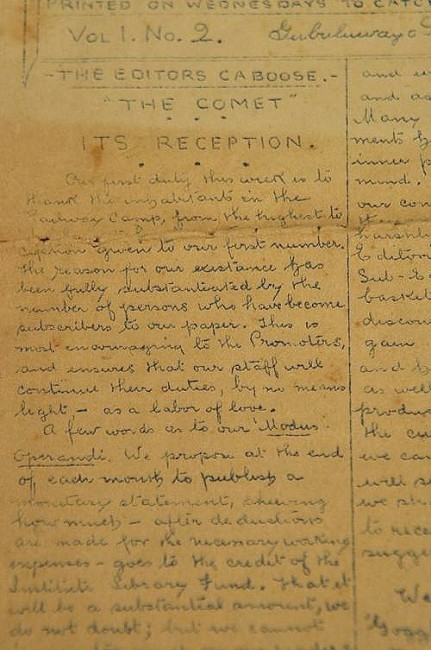 PRINTED ON WEDNESDAYS TO CATCH
VOL 1. No. 2. Gubuluwayo
-THE EDITORS CABOOSE.-
"THE COMET"
ITS RECEPTION.
Our first duty this week is to
thank the inhabitants in the
Railway Camp, from the highest to
given to our first number.
The reason for our existance has
been fully substantiated by the
number of persons who have become
subscribers to our paper. This is
most encouraging to the Promoters,
and ensures that our staff will
continue their duties, by no means
light, - as a labor of love.
A few words as to our "Modus
Operandi. We propose at the end
of, each month to publish a
monetary statement, shewing
how much - after deductions
are made for the necessary working
expenses - goes to the credit of the
Institute Library Fund. That it
will be a substantial amount, we
do not doubt; but we cannot
and
and
Many
ments
inner
mind.
our con
it
harshl
Editor
Sub-E
basket
discou
gain
and b
as well
produ
the cu
we can
will s
we sh
to rece
sugge
We
"Gogg